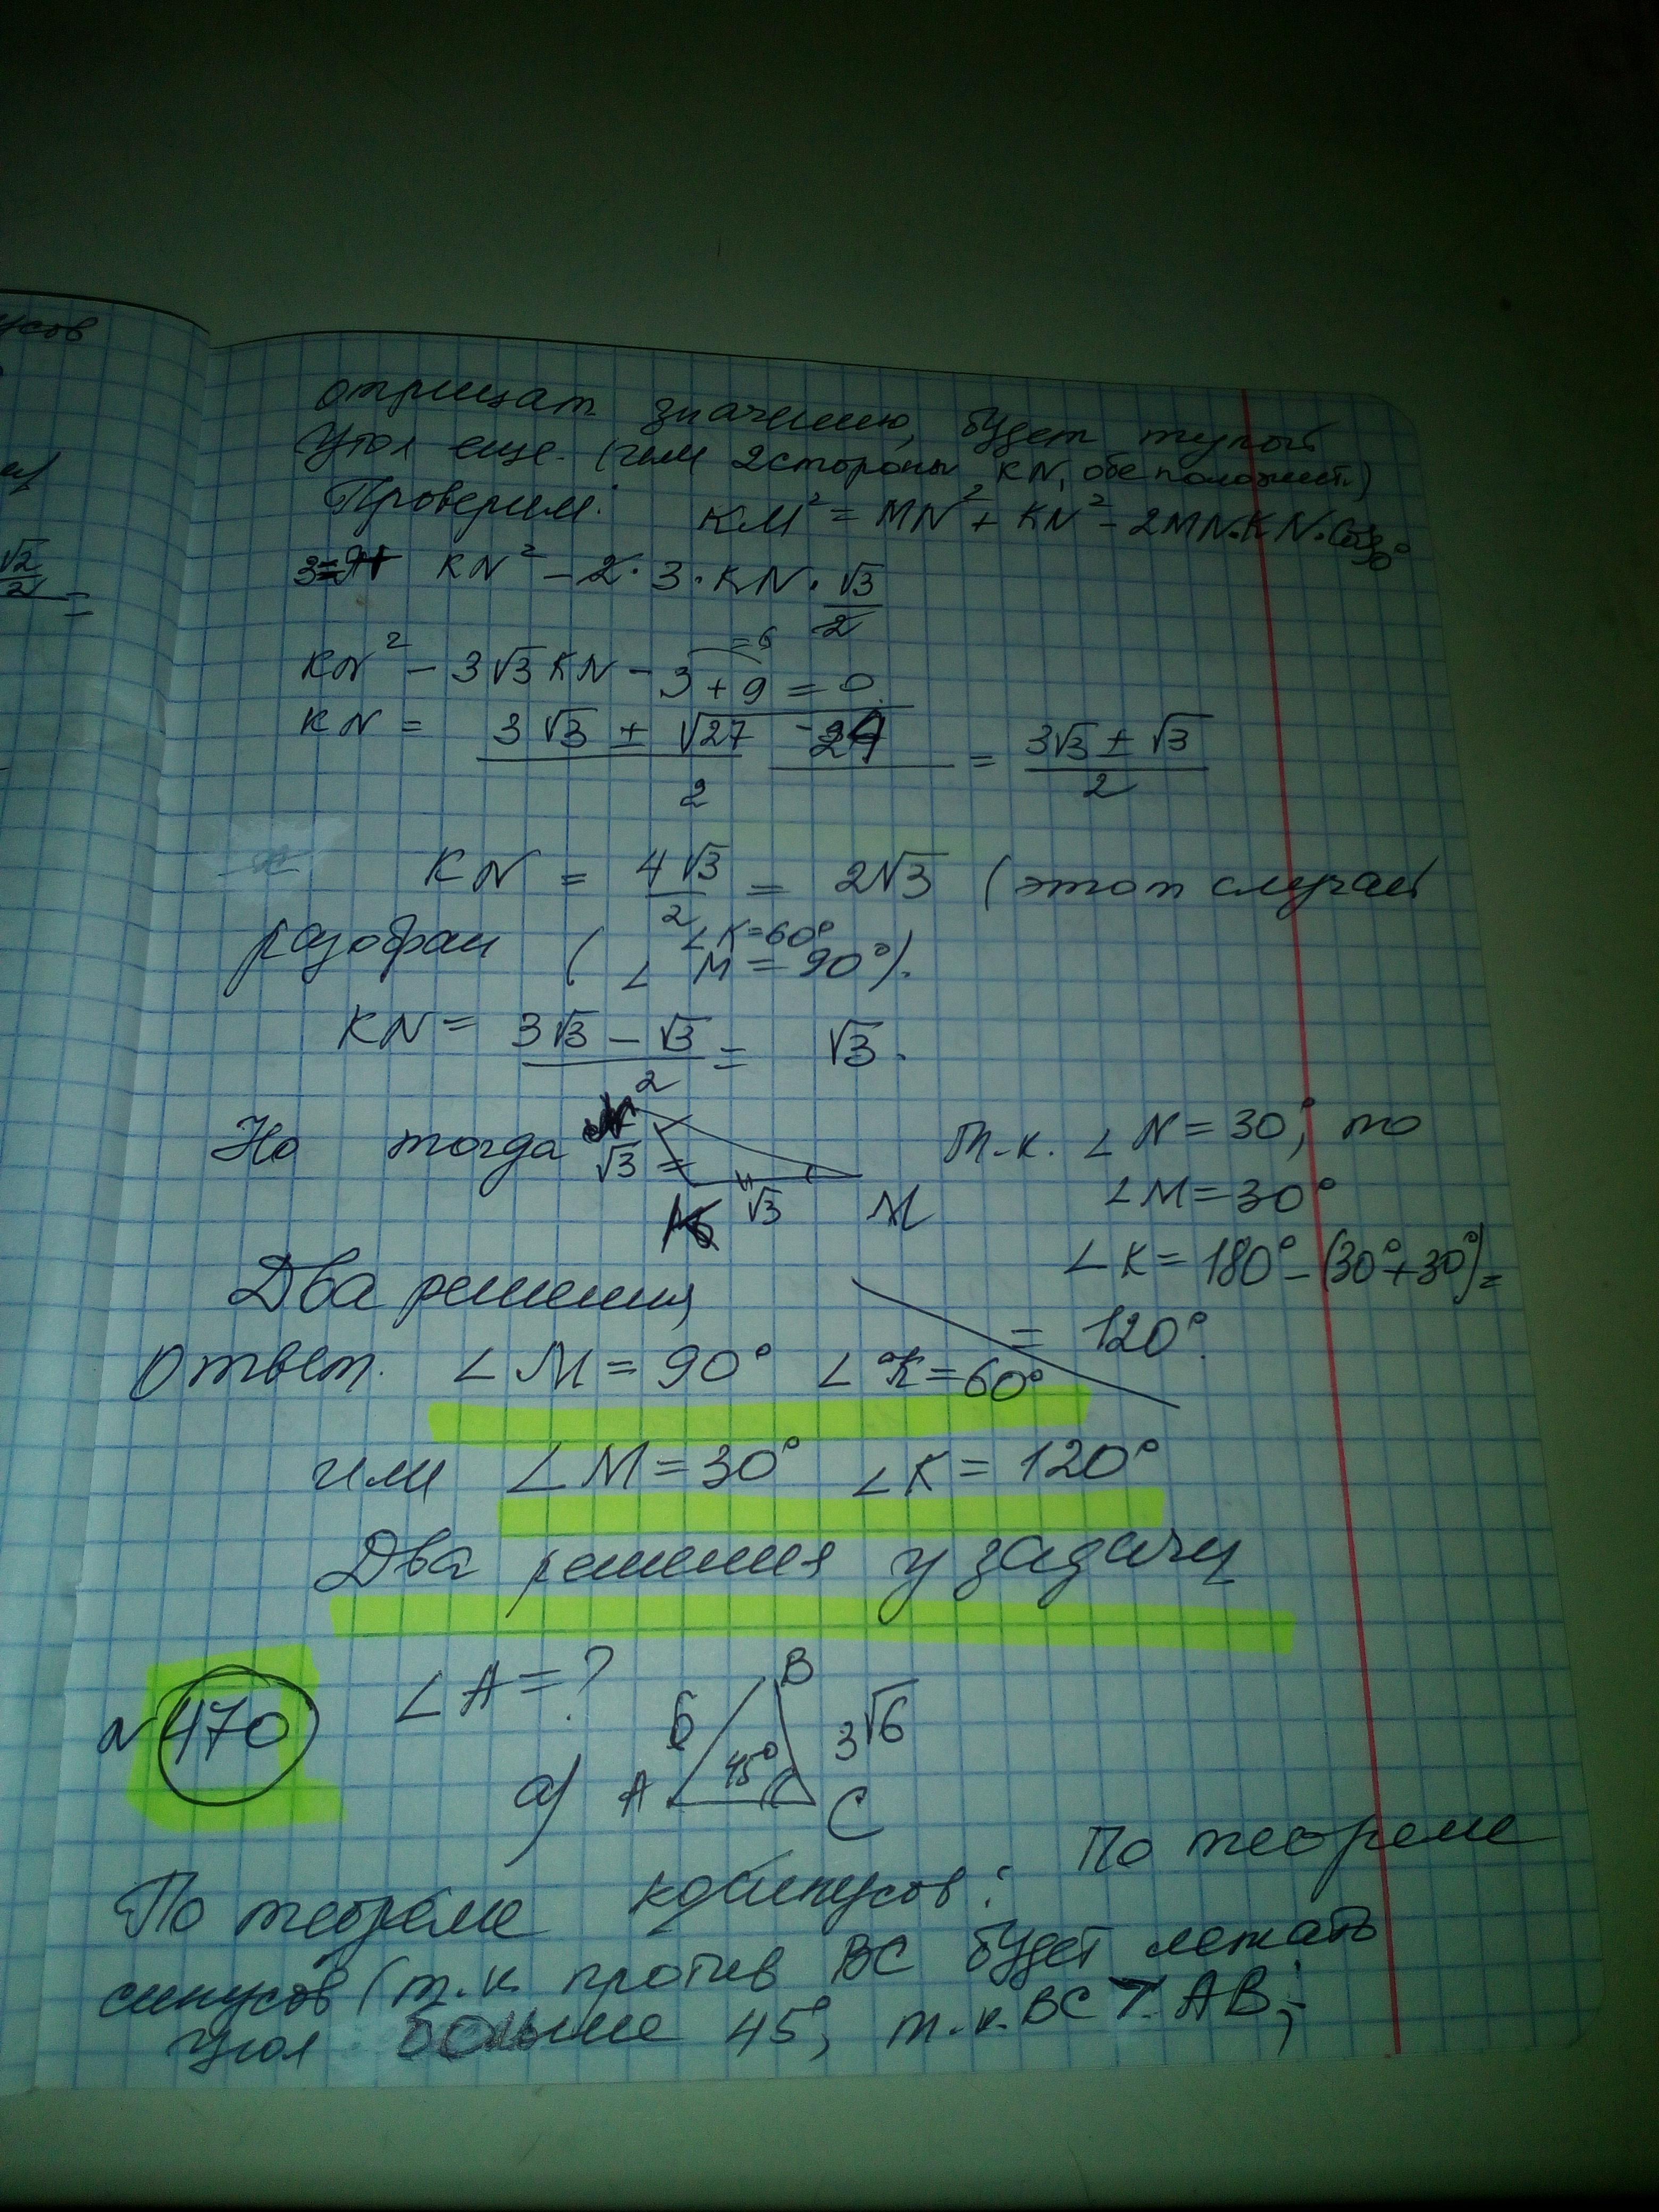 усов
√2
2 =
отрицат. значению, будет тупой
угол еще. (или 2 стороны KN, обе положит.)
Проверим: KM² = MN² + KN² - 2MN·KN·Cos30°
3=9+ KN² - 2·3·KN·√3/2
KN² - 3√3KN - 3+9 = 0. =6
KN = (3√3 ± √27 - 24)/2 = (3√3 ± √3)/2
KN = 4√3/2 = 2√3 (этот случай
разобран ( ∠K=60° ∠M = 90°).
KN = (3√3 - √3)/2 = √3.
Но тогда N √3 K √3 M т.к. ∠N = 30°, то
∠M = 30°
∠K = 180° - (30°+30°) =
= 120°.
Два решения
Ответ. ∠M = 90° ∠K = 60°
или ∠M = 30° ∠K = 120°
Два решения у задачи
N 470 ∠A = ?
а) A 6 B 45° 3√6 C
По теореме косинусов: По теореме
синусов (т.к. против BC будет лежать
угол больше 45°, т.к. BC > AB;